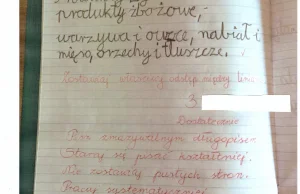 produkty zbożowe,
warzywa i owoce, nabiał i
mięso, orzechy i tłuszcze.
Zostawiaj właściwy odstęp między
3
Dostatecznie
Pisz zmazywalnym długopisem
Staraj się pisać kształtniej.
Nie zostawiaj pustych stron.
Pracuj systematycznie